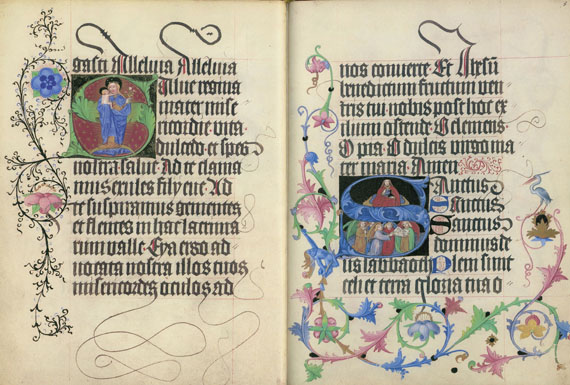 gasti Alleluia Alleluia
Salue regina
mater mise
ricordie vita
dulcedo et spes
nostra salue · Ad te clama
mus exules filii eue · Ad
te suspiramus gementes
et flentes in hac lacrima
rum valle · Eya ergo ad
uocata nostra illos tuos
misericordes oculos ad
nos conuerte · Et Ihesum
benedictum fructum ven
tris tui nobis post hoc ex
ilium ostende · O clemens
O pia · O dulcis virgo ma
ter maria · Amen
Sanctus
Sanctus
Sanctus
dominus de
us sabbaoth · Pleni sunt
celi et terra gloria tua O